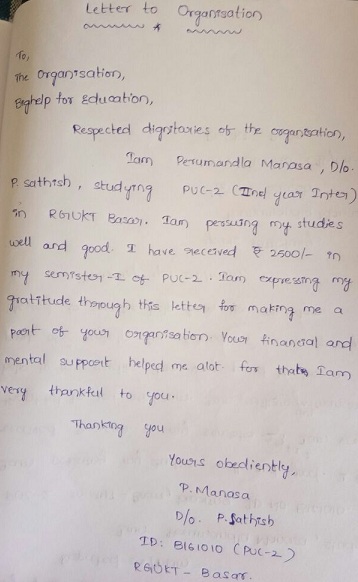 Letter to Organisation
To,
The Organisation,
Bighelp for Education,
Respected dignitaries of the organisation,
Iam Perumandla Manasa, D/o.
P. sathish, studying PUC-2 (IInd year Inter)
in RGUKT Basar. Iam persuing my studies
well and good. I have received ₹ 2500/- in
my semister-I of PUC-2. Iam expressing my
gratitude thorough this letter for making me a
part of your organisation. Your financial and
mental support helped me alot. for that Iam
very thankful to you.
Thanking you
Yours obediently,
P. Manasa
D/o. P. Sathish
ID: B161010 (PUC-2)
RGUKT - Basar.